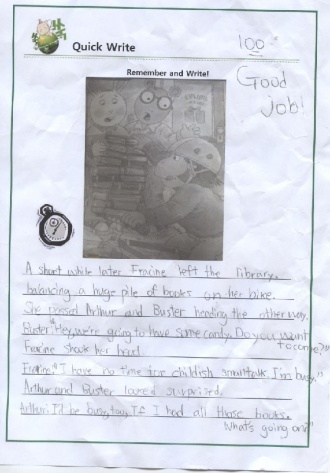 Quick Write
100
Good
Job!
Remember and Write!
A short while later Fracine left the library.
balancing a huge pile of books on her bike.
She passed Arthur and Buster heading the other way.
Buster: Hey, we're going to have some candy. Do you want
to come?"
Fracine shook her head
Fracine: "I have no time for childish smalltalk. I'm busy."
Arthur and Buster looked surprized.
Arthur: I'd be busy, too, If I had all those books.
What's going on?"